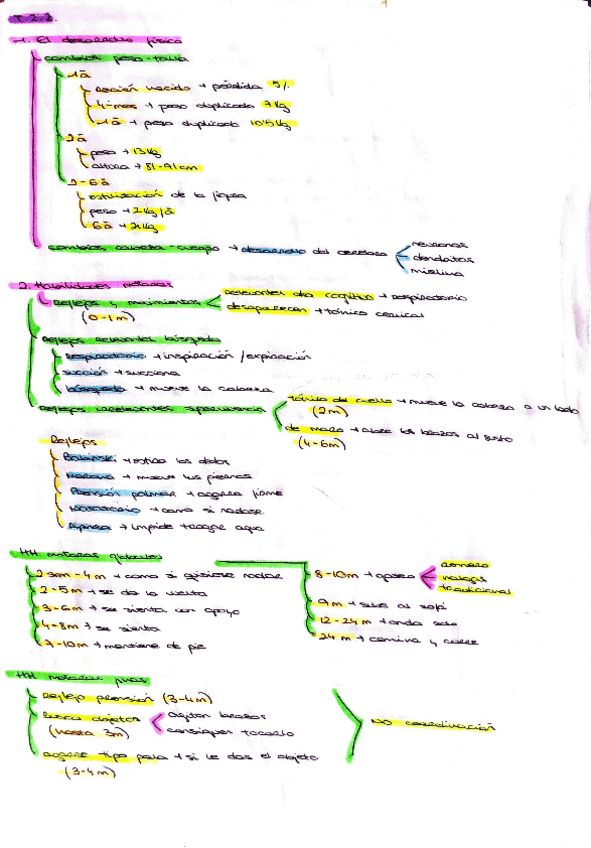 T.2.2.
1. El desarrollo físico
cambios peso-talla
1ã
recién nacido → pérdida 5%
4-mes → peso duplicado 7kg
1ã → peso duplicado 10'5kg
2ã
peso → 13kg
altura → 81-91cm
2-6ã
estilización de la figura
peso → 2kg/ã
6ã → 21kg
cambios cabeza-cuerpo → desarrollo del cerebro
neuronas
dendritas
mielina
2. Habilidades motoras
Reflejos y movimientos
(0-1m)
relevantes dllo cognitivo → respiratorio
desaparecen → tónico cervical
Reflejos relevantes búsqueda
respiratorio → inspiración / expiración
succión → succiona
búsqueda → mueve la cabeza
Reflejos irrelevantes supervivencia
tónico de cuello → mueve la cabeza a un lado
(2m)
de moro → abre los brazos al susto
(4-6m)
Reflejos
Babinski → estira los dedos
Marcha → mueve las piernas
Prensión palmar → agarra firme
Natatorio → como si nadase
Apnea → impide tragar agua
HH motoras globales
2 sem-4m → como si quisiese nadar
2-5m → se da la vuelta
3-6m → se sienta con apoyo
4-8m → se sienta
7-10m → mantiene de pie
8-10m → gateo
9m → sube al sofá
12-24m → anda solo
24m → camina y corre
HH motoras finas
Reflejo prensión (3-4m)
Busca objetos
(hasta 3m)
agitar brazos
conseguir tocarlo
agarre tipo pala → si le das el objeto
(3-4m)
NO coordinación